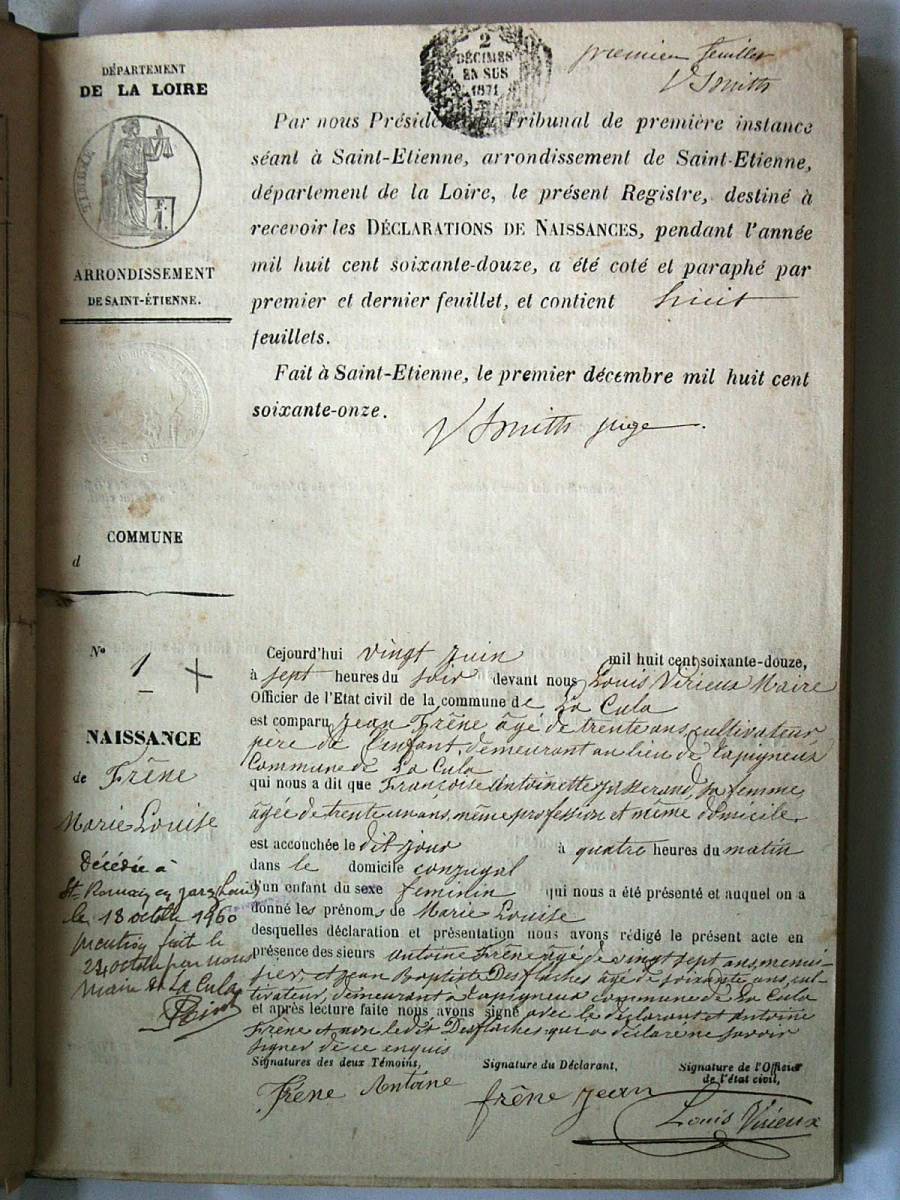 DÉPARTEMENT
DE LA LOIRE
TIMBRE
F.
1.
ARRONDISSEMENT
DE SAINT-ÉTIENNE.
COMMUNE
d
2
DÉCIMES
EN SUS
1871
premier feuillet
V Smith
Par nous Président du Tribunal de première instance
séant à Saint-Etienne, arrondissement de Saint-Etienne,
département de la Loire, le présent Registre, destiné à
recevoir les DÉCLARATIONS DE NAISSANCES, pendant l'année
mil huit cent soixante-douze, a été coté et paraphé par
premier et dernier feuillet, et contient huit
feuillets.
Fait à Saint-Etienne, le premier décembre mil huit cent
soixante-onze.
V Smith juge.
N° 1
NAISSANCE
de Frêne
Marie Louise
Décédée à
St Romain en jarez Loire
le 18 octobre 1960
mention faite le
24 octobre par nous
maire de La Cula
Cejourd'hui vingt juin mil huit cent soixante-douze,
à sept heures du soir devant nous Louis Virieux Maire
Officier de l'Etat civil de la commune de La Cula
est comparu Jean Frêne âgé de trente ans, cultivateur
père de l'enfant, demeurant au lieu de Capigneux
Commune de La Cula
qui nous a dit que Françoise Antoinette sa femme,
âgée de trente un ans, même profession et même domicile,
est accouchée le dit jour à quatre heures du matin
dans le domicile conjugal
d'un enfant du sexe féminin qui nous a été présenté et auquel on a
donné les prénoms de Marie Louise
desquelles déclaration et présentation nous avons rédigé le présent acte en
présence des sieurs Antoine Frêne âgé de vingt sept ans, menui-
sier, et Jean Baptiste Desflaches âgé de soixante ans, cul-
tivateur, demeurant à Capigneux commune de La Cula
et après lecture faite nous avons signé avec le déclarant et Antoine
Frêne et non le dit Desflaches qui a déclaré ne savoir
signer de ce enquis
Signatures des deux Témoins,
Signature du Déclarant,
Signature de l'Officier
de l'état civil,
Frêne Antoine
frêne jean
Louis Virieux